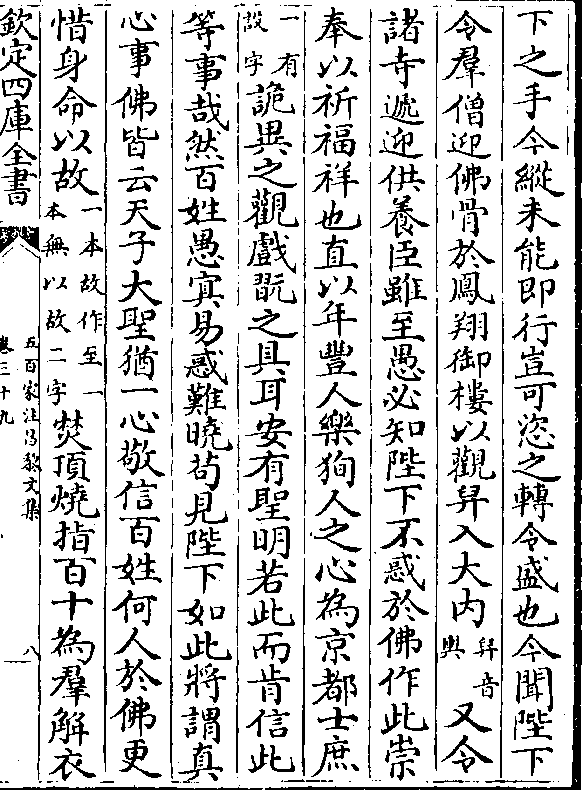 下之手今縱未能即行豈可恣之轉令盛也今聞陛下
令羣僧迎佛骨於鳳翔御樓以觀舁入大内舁音輿又令
諸寺遞迎供養臣雖至愚必知陛下不惑於佛作此崇
奉以祈福祥也直以年豐人樂狥人之心為京都士庶
一有設字詭異之觀戲翫之具耳安有聖明若此而肯信此
等事哉然百姓愚㝠易惑難曉茍見陛下如此將謂真
心事佛皆云天子大聖猶一心敬信百姓何人於佛更
惜身命以故一本故作至一本無以故二字焚頂燒指百十為羣解衣
欽定四庫全書
五百家注昌黎文集
卷三十九
八